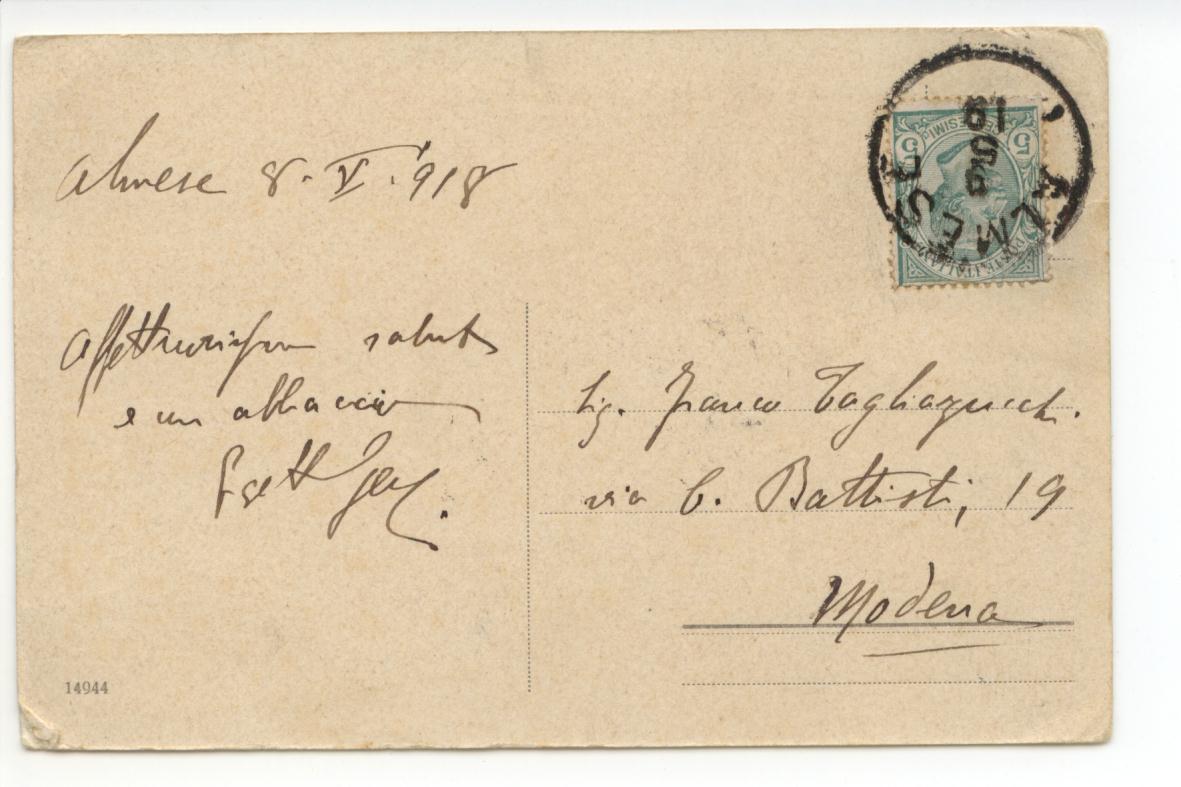 Almese 8. V. '918
Affettuosissimi saluti
e un abbraccio
Sig. Franco Tagliazucchi.
via C. Battisti, 19
Modena
14944
ALMESE
5 5